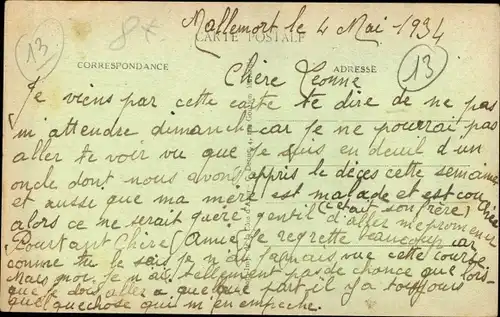 13
8*
Mallemort le 4 Mai 1934
CARTE POSTALE
CORRESPONDANCE
ADRESSE
13
Chère Léonne
Je viens par cette carte te dire de ne pas
m'attendre dimanche car je ne pourrai pas
aller te voir vu que je suis en deuil d'un
oncle dont nous avons appris le décès cette semaine
et aussi que ma mère est malade et est couchée
(c'était son frère)
alors ce ne serait guère gentil d'aller me promener
Pourtant Chère Amie je regrette beaucoup car
comme tu le sais je n'ai jamais vue cette course
Mais moi je n'ai tellement pas de chance que lors-
que je dois aller a quelque part il y a toujours
quelquechose qui m'en empeche.